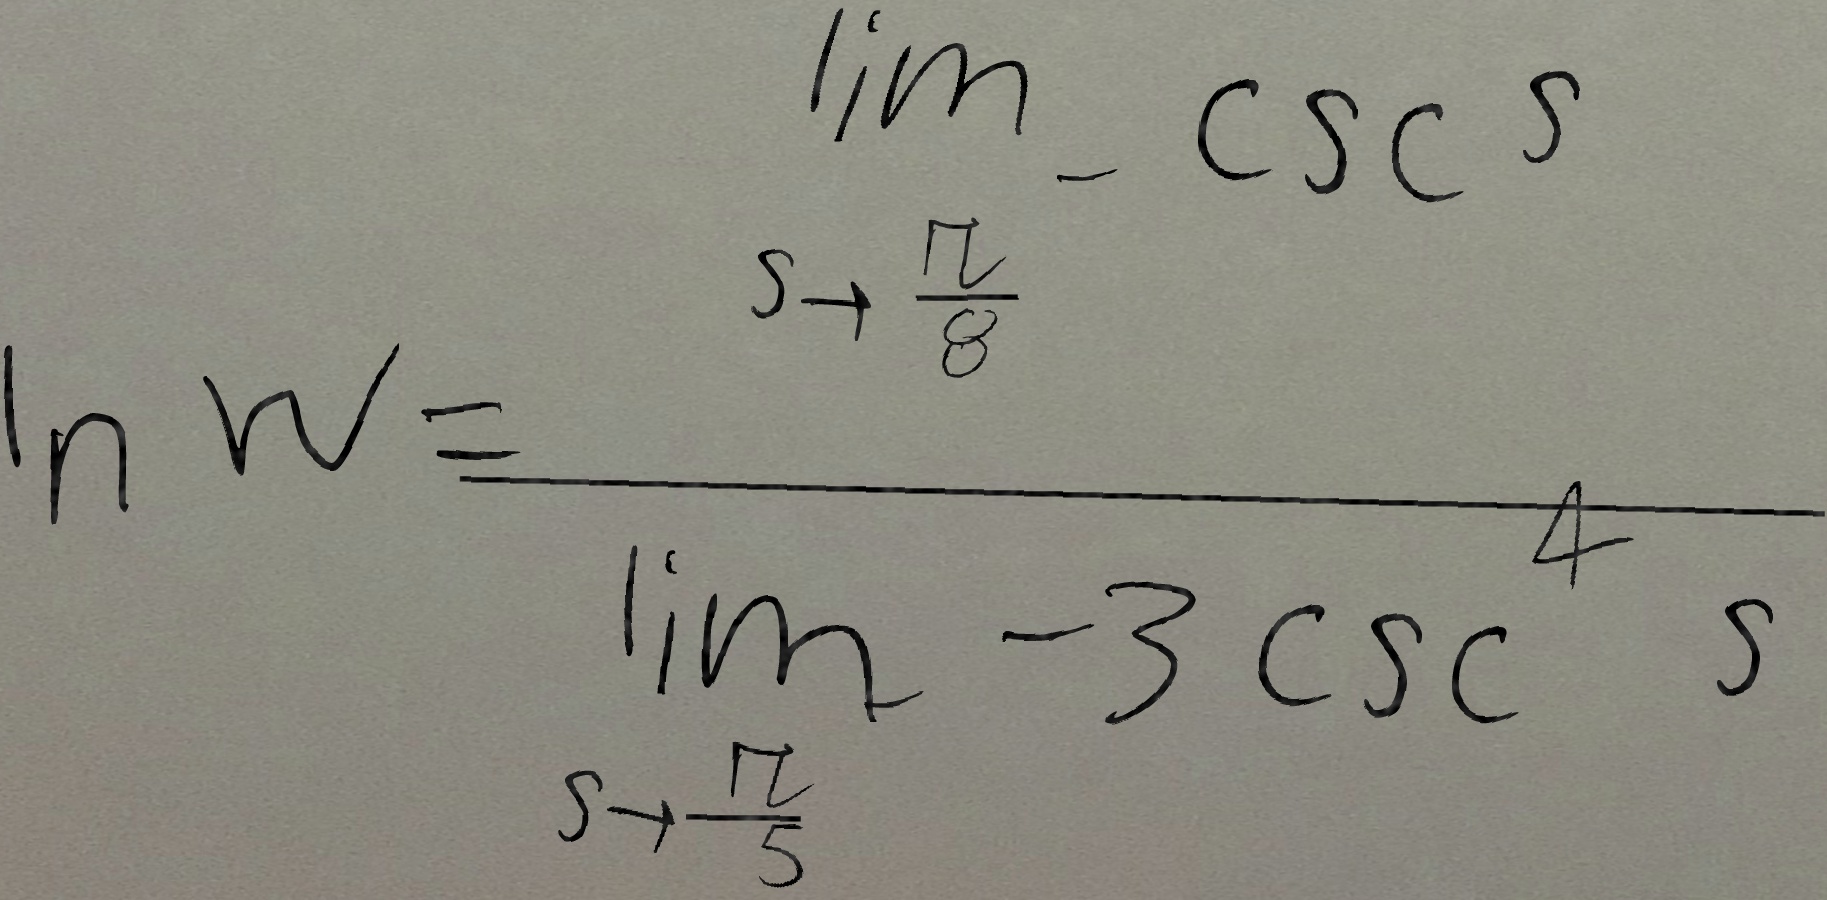 ln w = \frac{\lim_{s \to \frac{\pi}{8}} - \csc s}{\lim_{s \to \frac{\pi}{5}} -3 \csc^4 s}